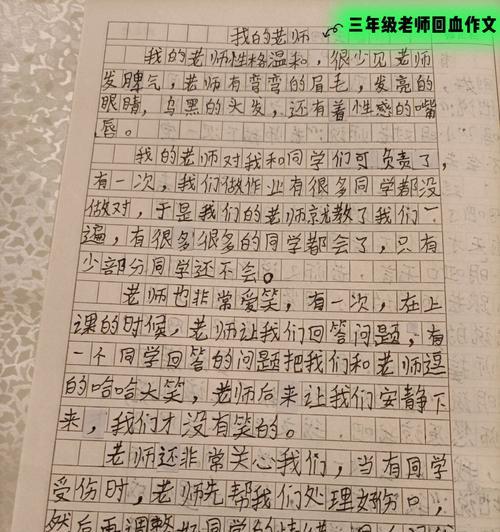 三年级老师回血作文
我的老师
我的老师性格温和，很少见老师
发脾气，老师有弯弯的眉毛，发亮的
眼睛，乌黑的头发，还有着性感的嘴
唇。
我的老师对我和同学们可负责了，
有一次，我们做作业有很多同学都没
做对，于是我们的老师就教了我们一
遍，有很多很多的同学都会了，只有
少部分同学还不会。
老师也非常爱笑，有一次，在上
课的时候，老师让我们回答问题，有
一个同学回答的问题把我们和老师逗
的哈哈大笑，老师后来让我们安静下
来，我们才没有笑的。
老师还非常关心我们，当有同学
受伤时，老师先帮我们处理好伤口，
然后再调整好同学的情绪